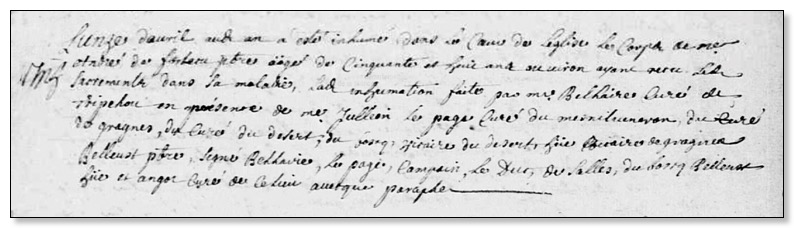 Lunze d'avril aud an a esté inhumé dans le Cœur de leglise le Corps de me
andré de pbre aagé de Cinquante et huit ans ou viron ayant recu les
sacrements dans sa maladie, lad inhumation faite par mr Bellaire Curé de
en présence de me Jullien le page Curé du mesnil du Curé
de gragnes, du Curé du desert, du vicaire du desert, huë vicaire de gragnes
Belleust pbre, Signé Bellaire, le page, Campain, le Duc, de Salles, du Belleust
huë et angot Curé de Celieu avecque paraphe